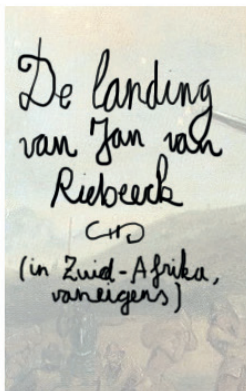 De landing
van Jan van
Riebeeck
(in Zuid-Afrika,
vaneigens)